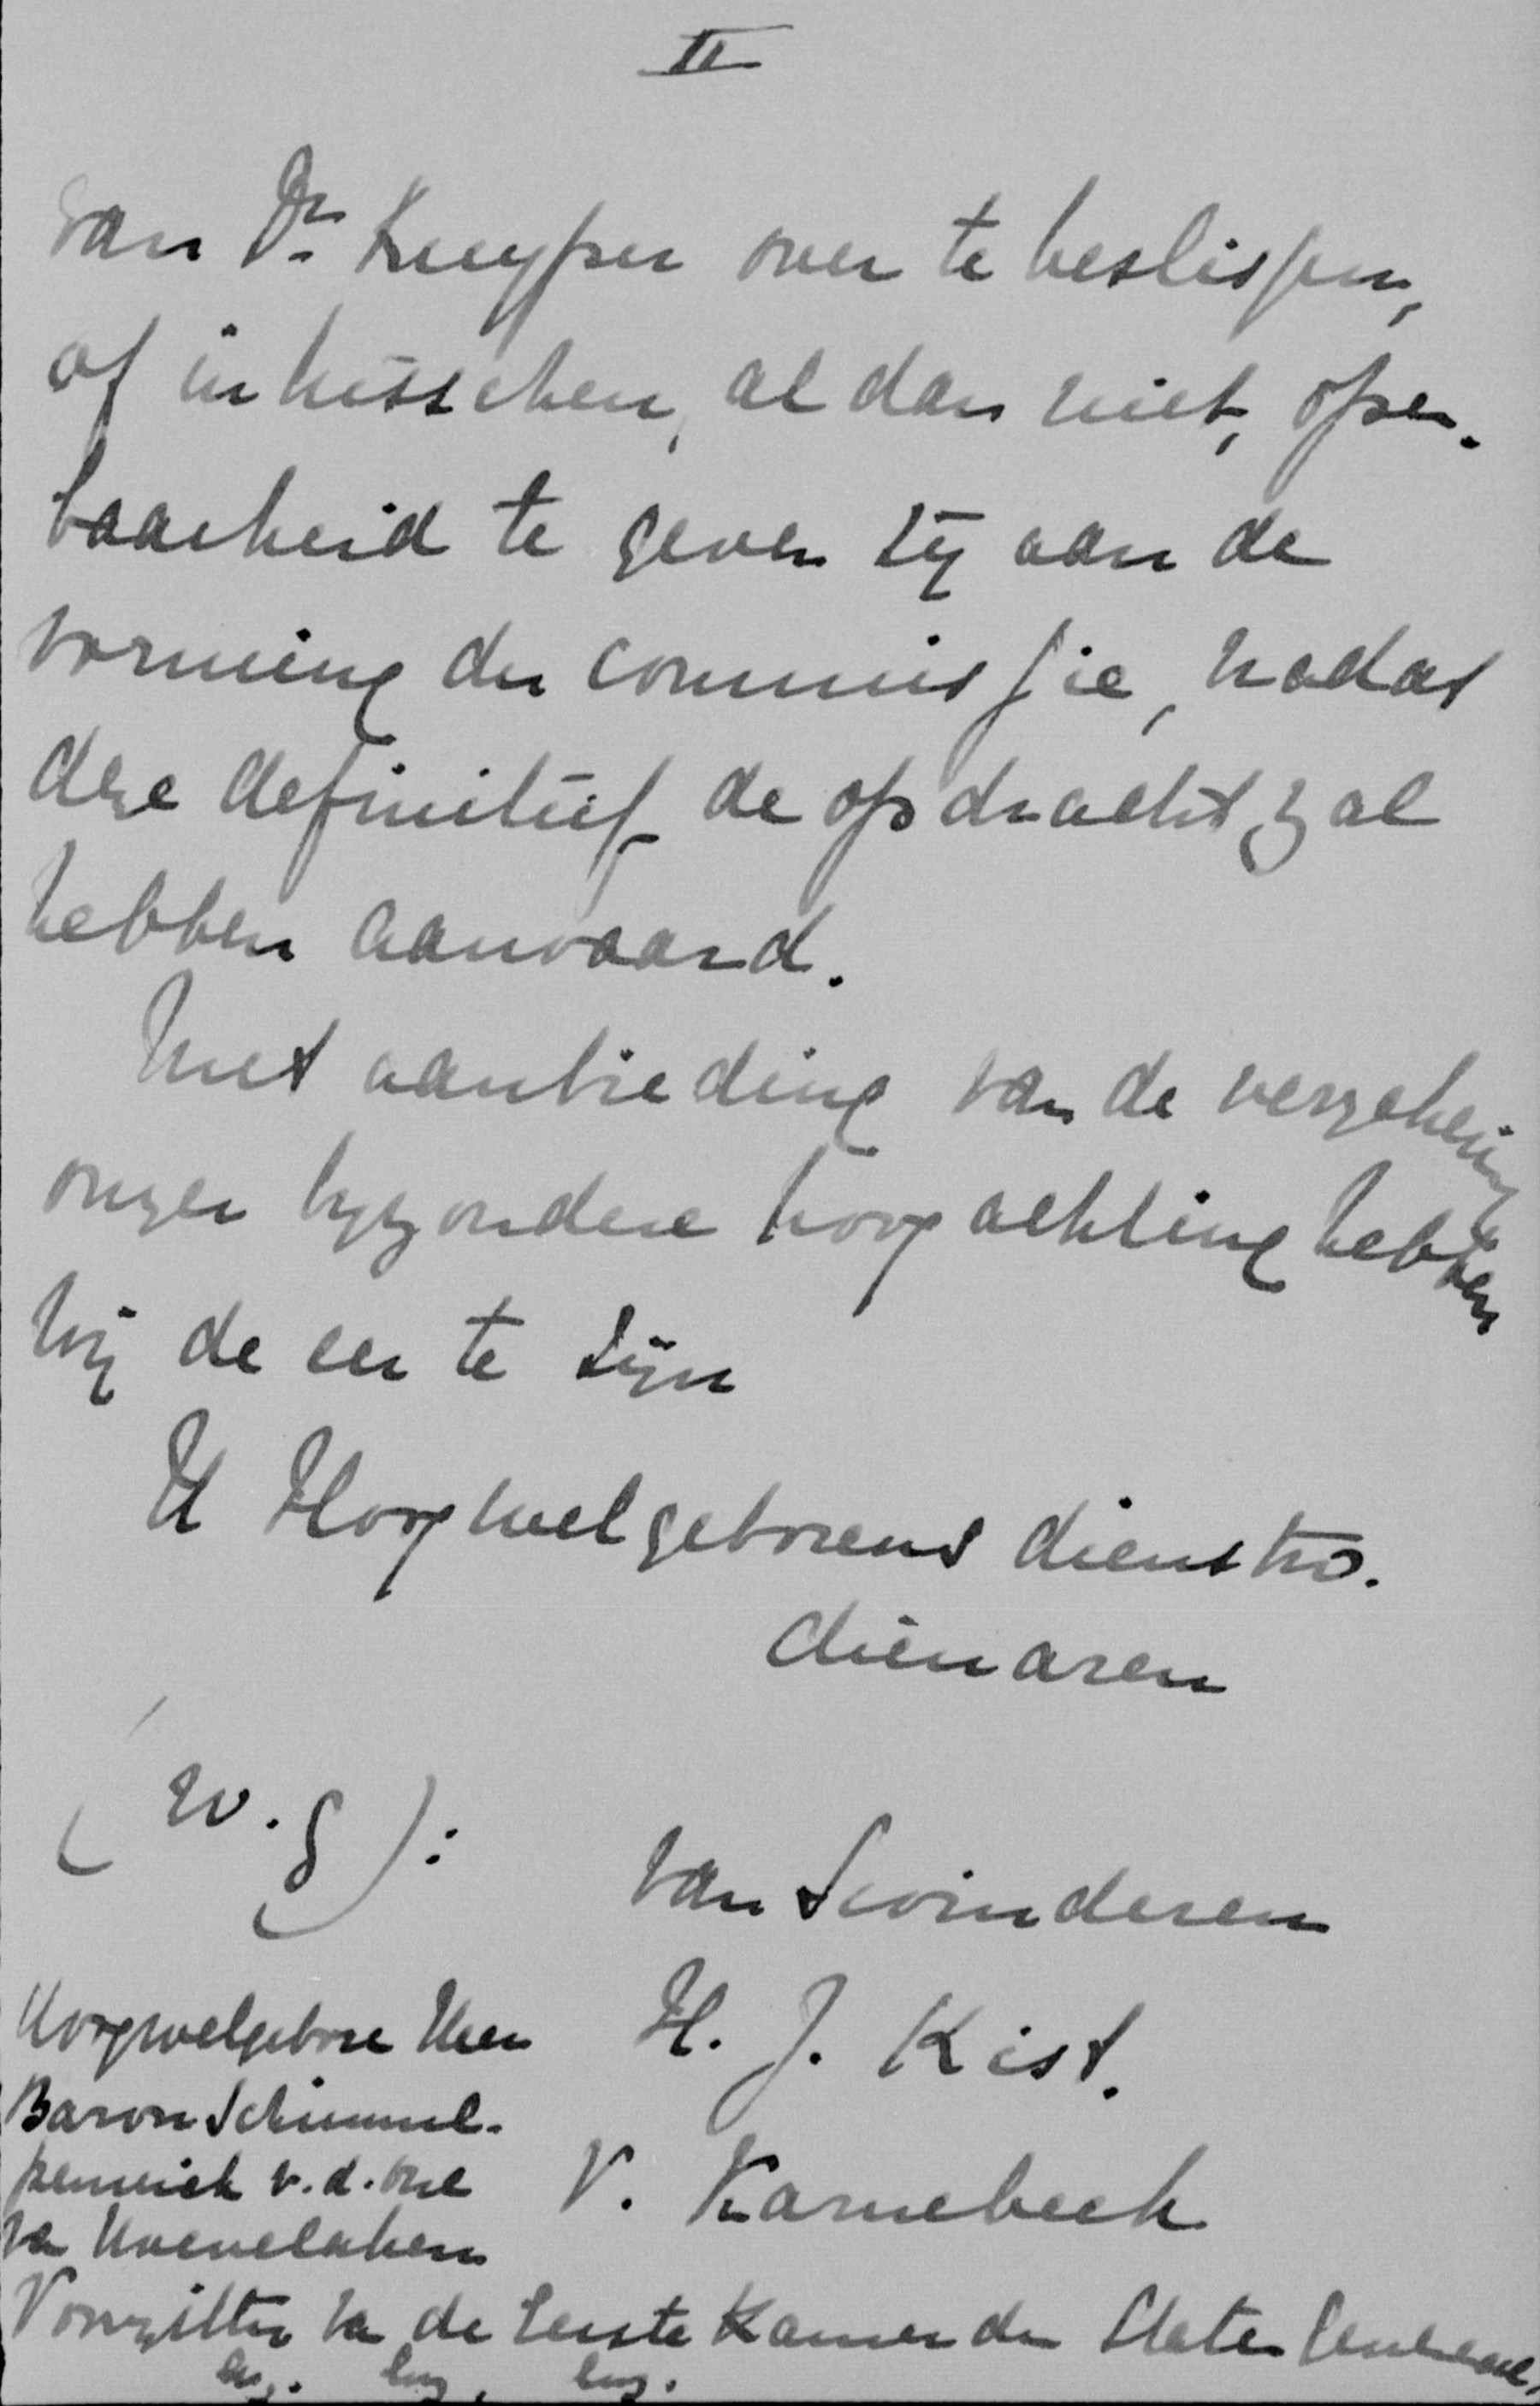 II
van Dr Kuyper over te beslissen,
of intusschen, al dan niet, open-
baarheid te geven zij aan de
vorming der commissie, nadat
deze definitief de opdracht zal
hebben aanvaard.
Met aanbieding van de verzekering
onzer byzondere hoogachting hebben
wij de eer te zijn
U Hoogwelgeborens dienstw.
dienaren
(w.g):
van Swinderen
H. J. Kist.
V. Karnebeek
Hoogwelgebore Heer
Baron Schimmel-
penninck v. d. Oye
va Hoevelaken
Voorzitter va de Eerste Kamer der Staten Generaal,
enz. enz. enz.